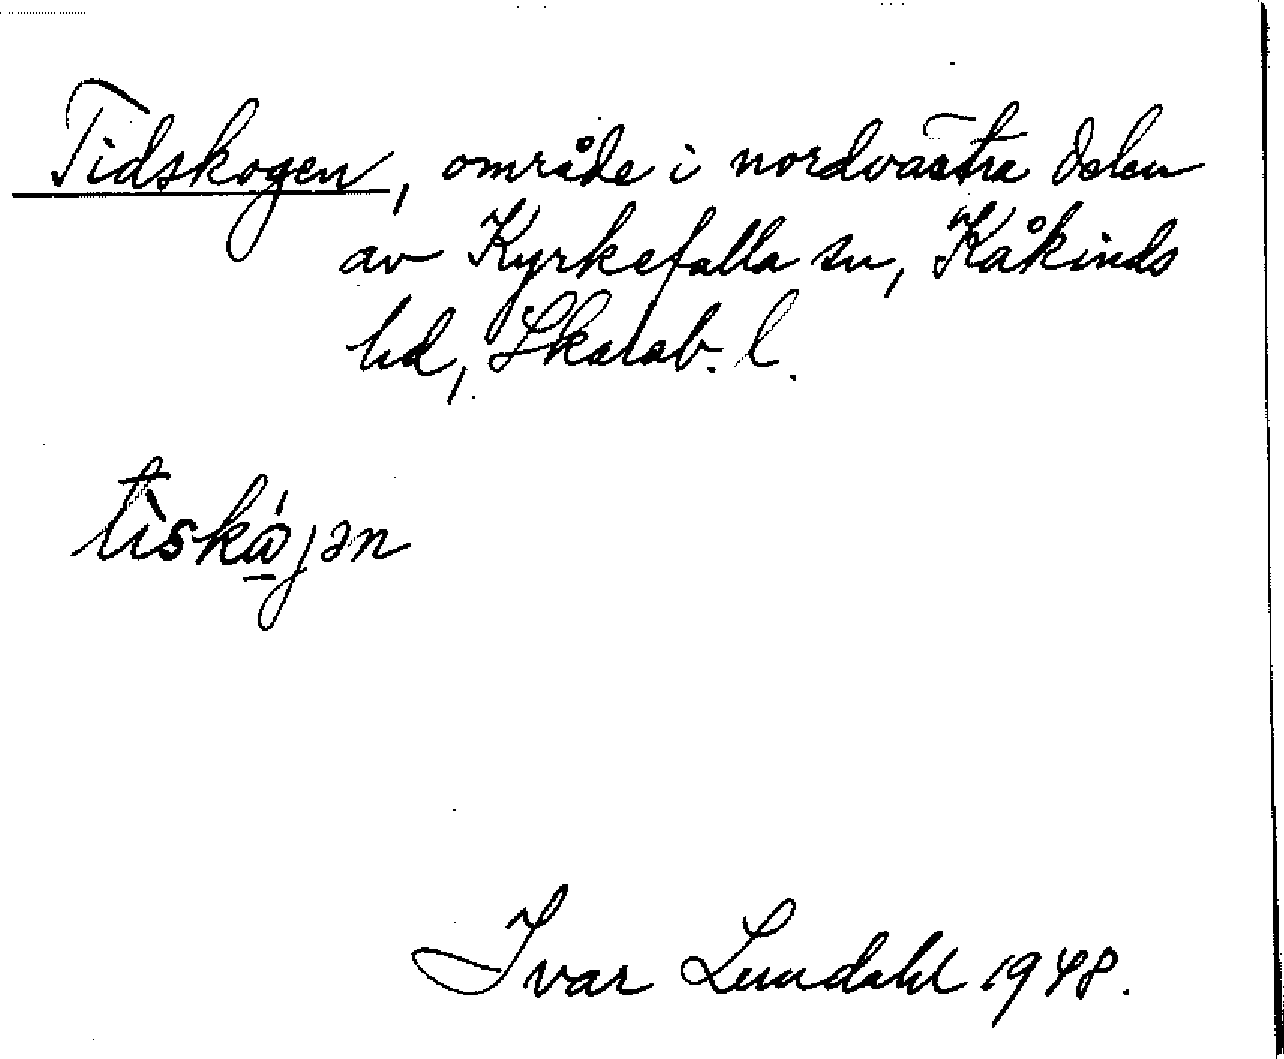 Tidskogen, område i nordvästra delen
av Kyrkefalla sn, Kåkinds
hd, Skarab. l.
tìská̱jən
Ivar Lundahl 1948.